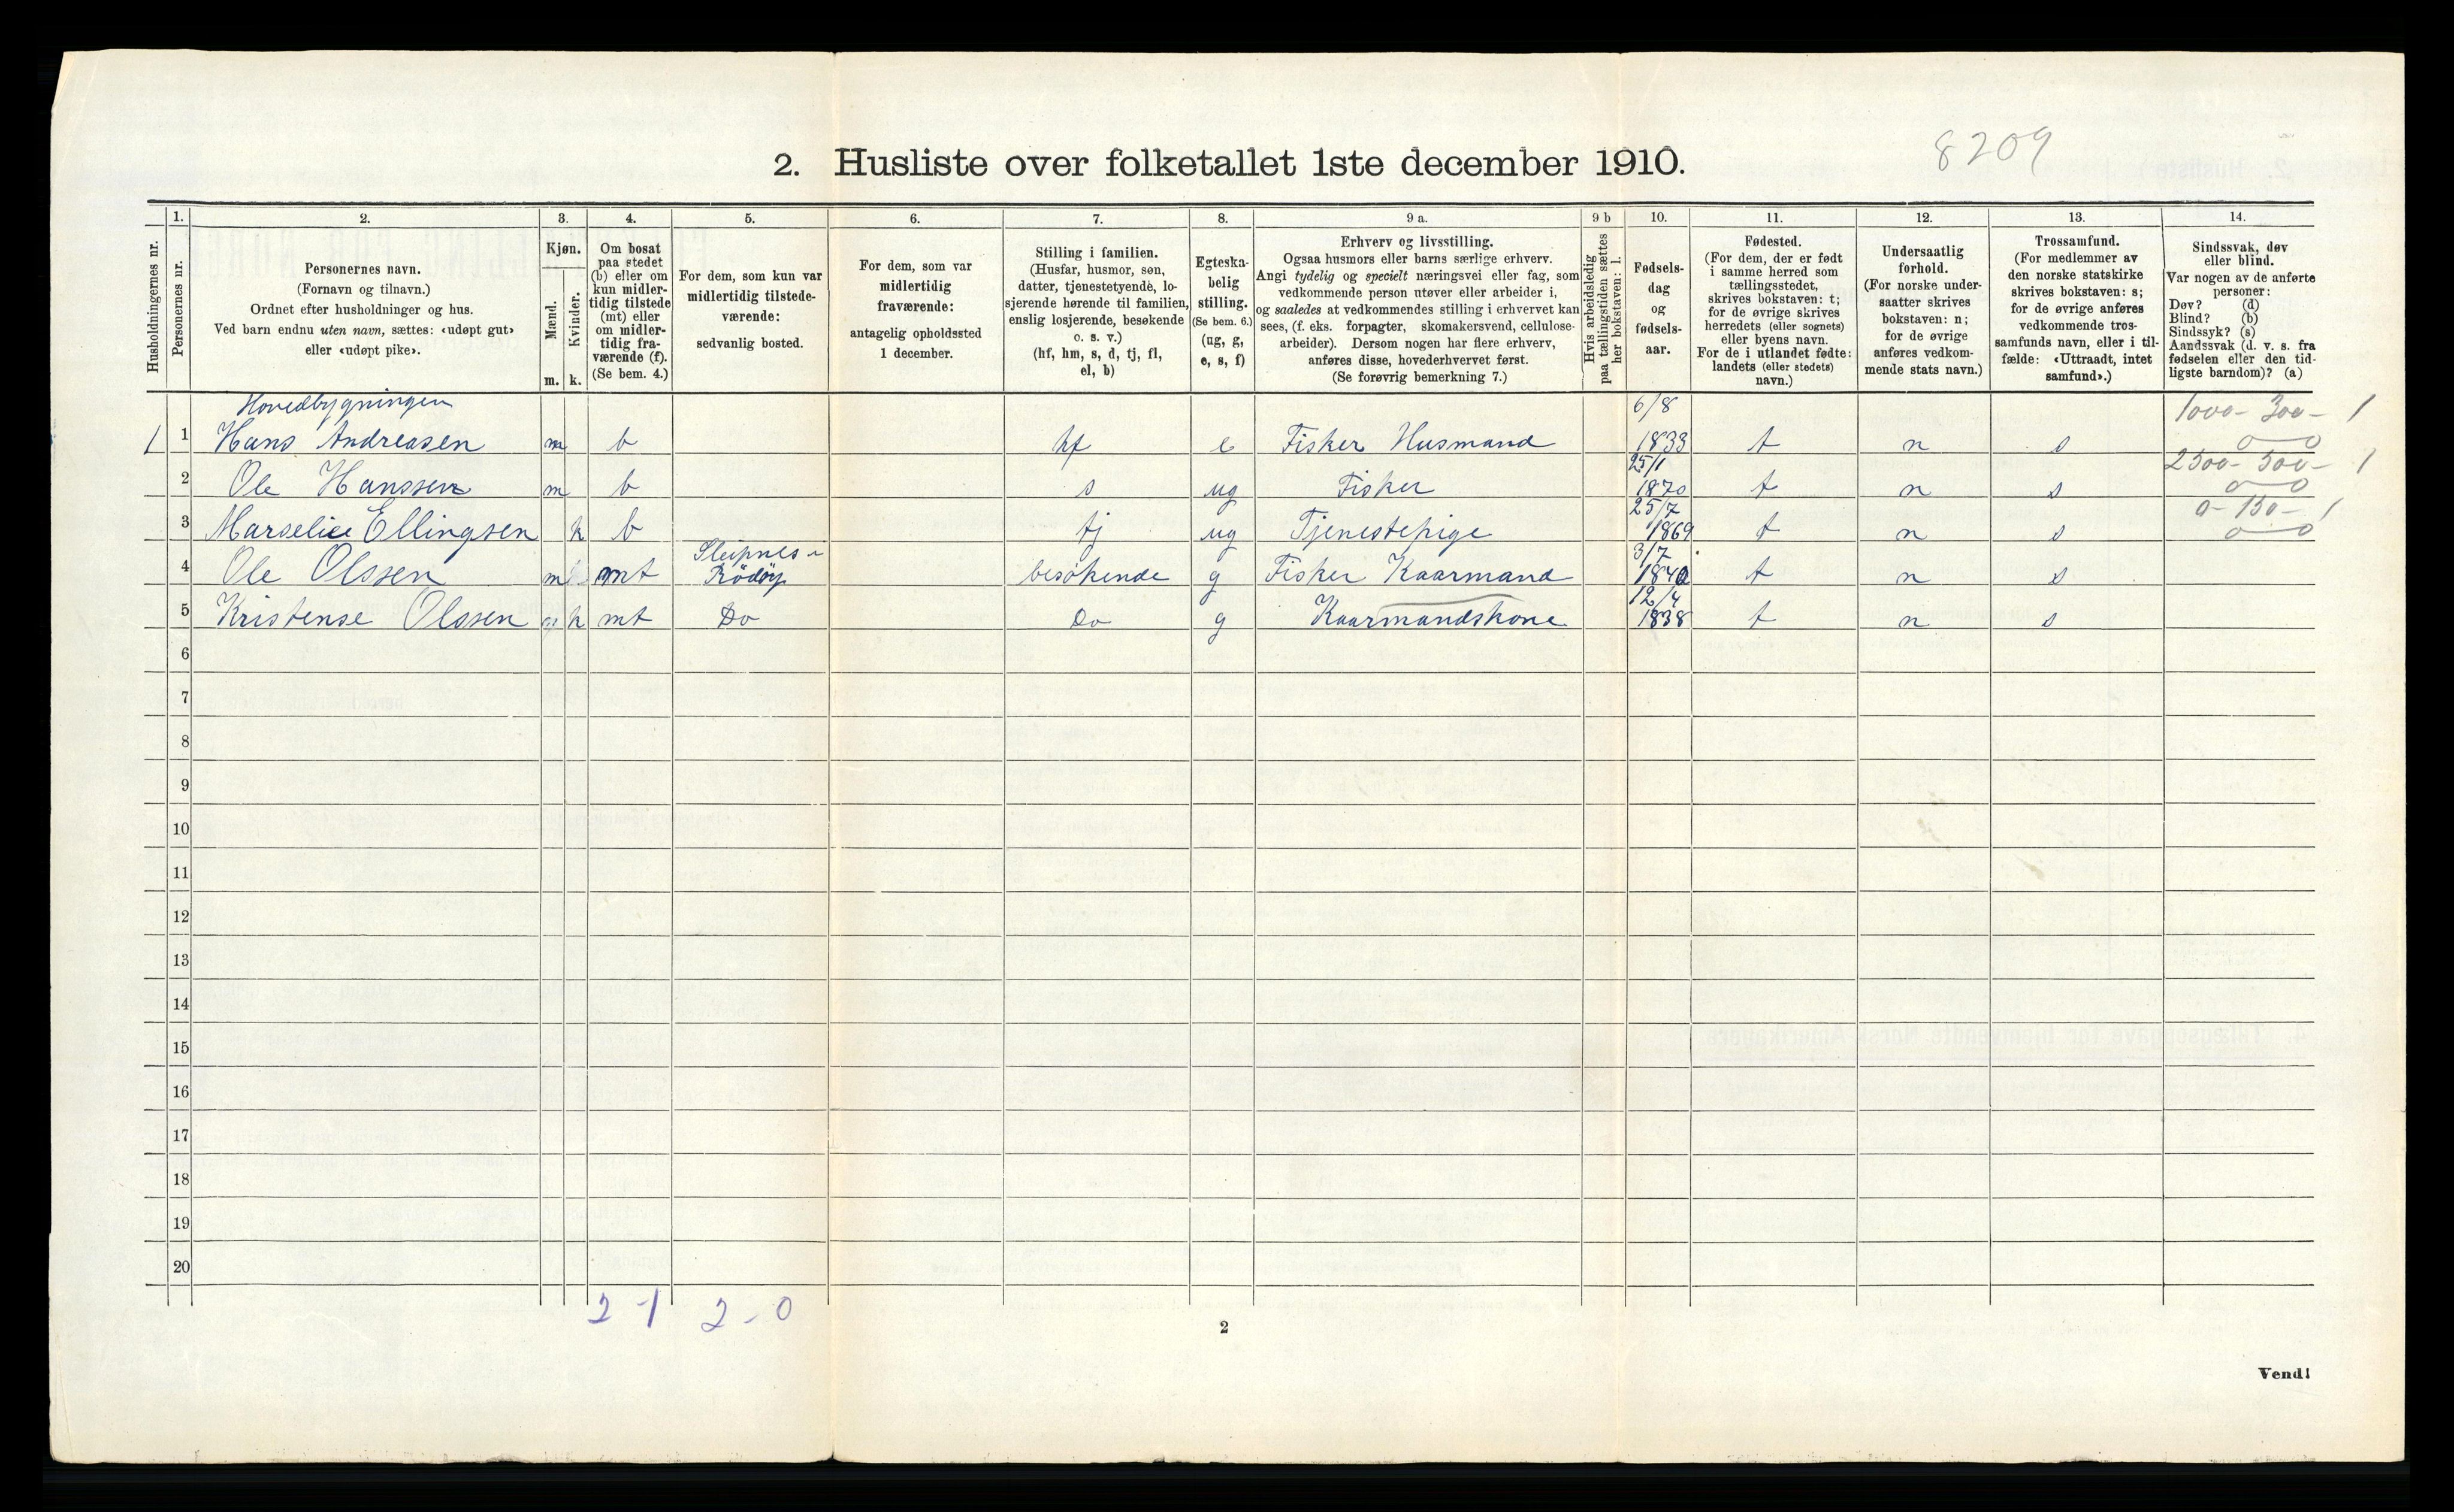 8209
2. Husliste over folketallet 1ste december 1910.
Husholdningernes nr.
1. Personernes nr.
2. Personernes navn.
(Fornavn og tilnavn.)
Ordnet efter husholdninger og hus.
Ved barn endnu uten navn, sættes: «udøpt gut»
eller «udøpt pike».
3. Kjøn.
Mænd. m.
Kvinder. k.
4. Om bosat
paa stedet
(b) eller om
kun midler-
tidig tilstede
(mt) eller
om midler-
tidig fra-
værende (f).
(Se bem. 4.)
5. For dem, som kun var
midlertidig tilstede-
værende:
sedvanlig bosted.
6. For dem, som var
midlertidig
fraværende:
antagelig opholdssted
1 december.
7. Stilling i familien.
(Husfar, husmor, søn,
datter, tjenestetyende, lo-
sjerende hørende til familien,
enslig losjerende, besøkende
o. s. v.)
(hf, hm, s, d, tj, fl,
el, b)
8. Egteska-
belig
stilling.
(Se bem. 6.)
(ug, g,
e, s, f)
9 a. Erhverv og livsstilling.
Ogsaa husmors eller barns særlige erhverv.
Angi tydelig og specielt næringsvei eller fag, som
vedkommende person utøver eller arbeider i,
og saaledes at vedkommendes stilling i erhvervet kan
sees, (f. eks. forpagter, skomakersvend, cellulose-
arbeider). Dersom nogen har flere erhverv,
anføres disse, hovederhvervet først.
(Se forøvrig bemerkning 7.)
9 b Hvis arbeidsledig
paa tællingstiden sættes
her bokstaven: l.
10. Fødsels-
dag
og
fødsels-
aar.
11. Fødested.
(For dem, der er født
i samme herred som
tællingsstedet,
skrives bokstaven: t;
for de øvrige skrives
herredets (eller sognets)
eller byens navn.
For de i utlandet fødte:
landets (eller stedets)
navn.)
12. Undersaatlig
forhold.
(For norske under-
saatter skrives
bokstaven: n;
for de øvrige
anføres vedkom-
mende stats navn.)
13. Trossamfund.
(For medlemmer av
den norske statskirke
skrives bokstaven: s;
for de øvrige anføres
vedkommende tros-
samfunds navn, eller i til-
fælde: «Uttraadt, intet
samfund».)
14. Sindssvak, døv
eller blind.
Var nogen av de anførte
personer:
Døv? (d)
Blind? (b)
Sindssyk? (s)
Aandssvak (d. v. s. fra
fødselen eller den tid-
ligste barndom)? (a)
Hovedbygningen 6/8 1000- 300- 1
1 1 Hans Andreasen m b hf e Fisker Husmand 1833 t n s 0 0
25/1 2500- 500- 1
2 Ole Hanssen m b s ug Fisker 1870 t n s 0 0
25/7 0- 150- 1
3 Marselie Ellingsen k b tj ug Tjenestepige 1869 t n s 0 0
Sleipnes i 3/7
4 Ole Olssen m mt Rödöy besökende g Fisker Kaarmand 1840 t n s
12/4
5 Kristense Olssen k mt Do Do g Kaarmandskone 1838 t n s
6
7
8
9
10
11
12
13
14
15
16
17
18
19
20
2 - 1 2 - 0
2
Vend!